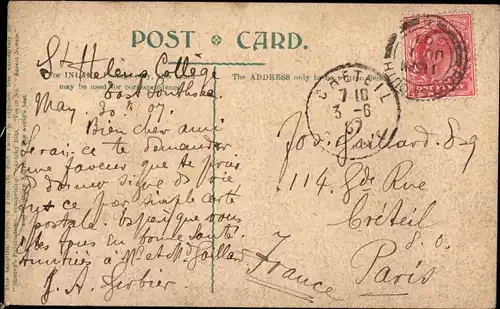 POST CARD.
For INLAND
may be used for correspondence.
The ADDRESS only to be
St Helens Collège
East Southsea
May 30th 07.
Bien cher ami
Serais ce te demander
une faveur que te prier
de donner signe de vie
fut ce par simple carte
postale. Espère que vous
êtes tous en bonne santé.
Amitiés à Mr et Md Gaillard
J. A. Gerbier
CRETEIL
7-10
3-6
07
Jos. Gaillard. Esq
114. Gde Rue
Créteil
s. o.
Paris
France